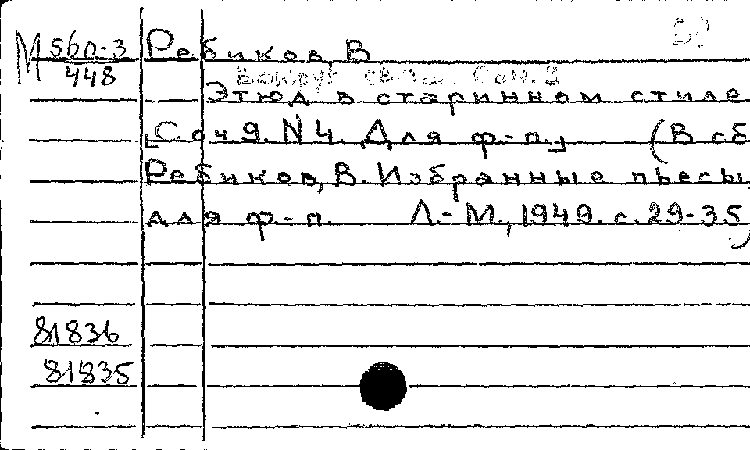 М 56п-3
448
Ребиков, В
Вокруг света. Соч. 2
Этюд в старинном стиле
[Соч 9. N 4. Для ф.-п.] (В сб
Ребиков, В. Избранные пьесы
для ф.-п. Л.-М., 1949. с. 29-35)
81836
81835